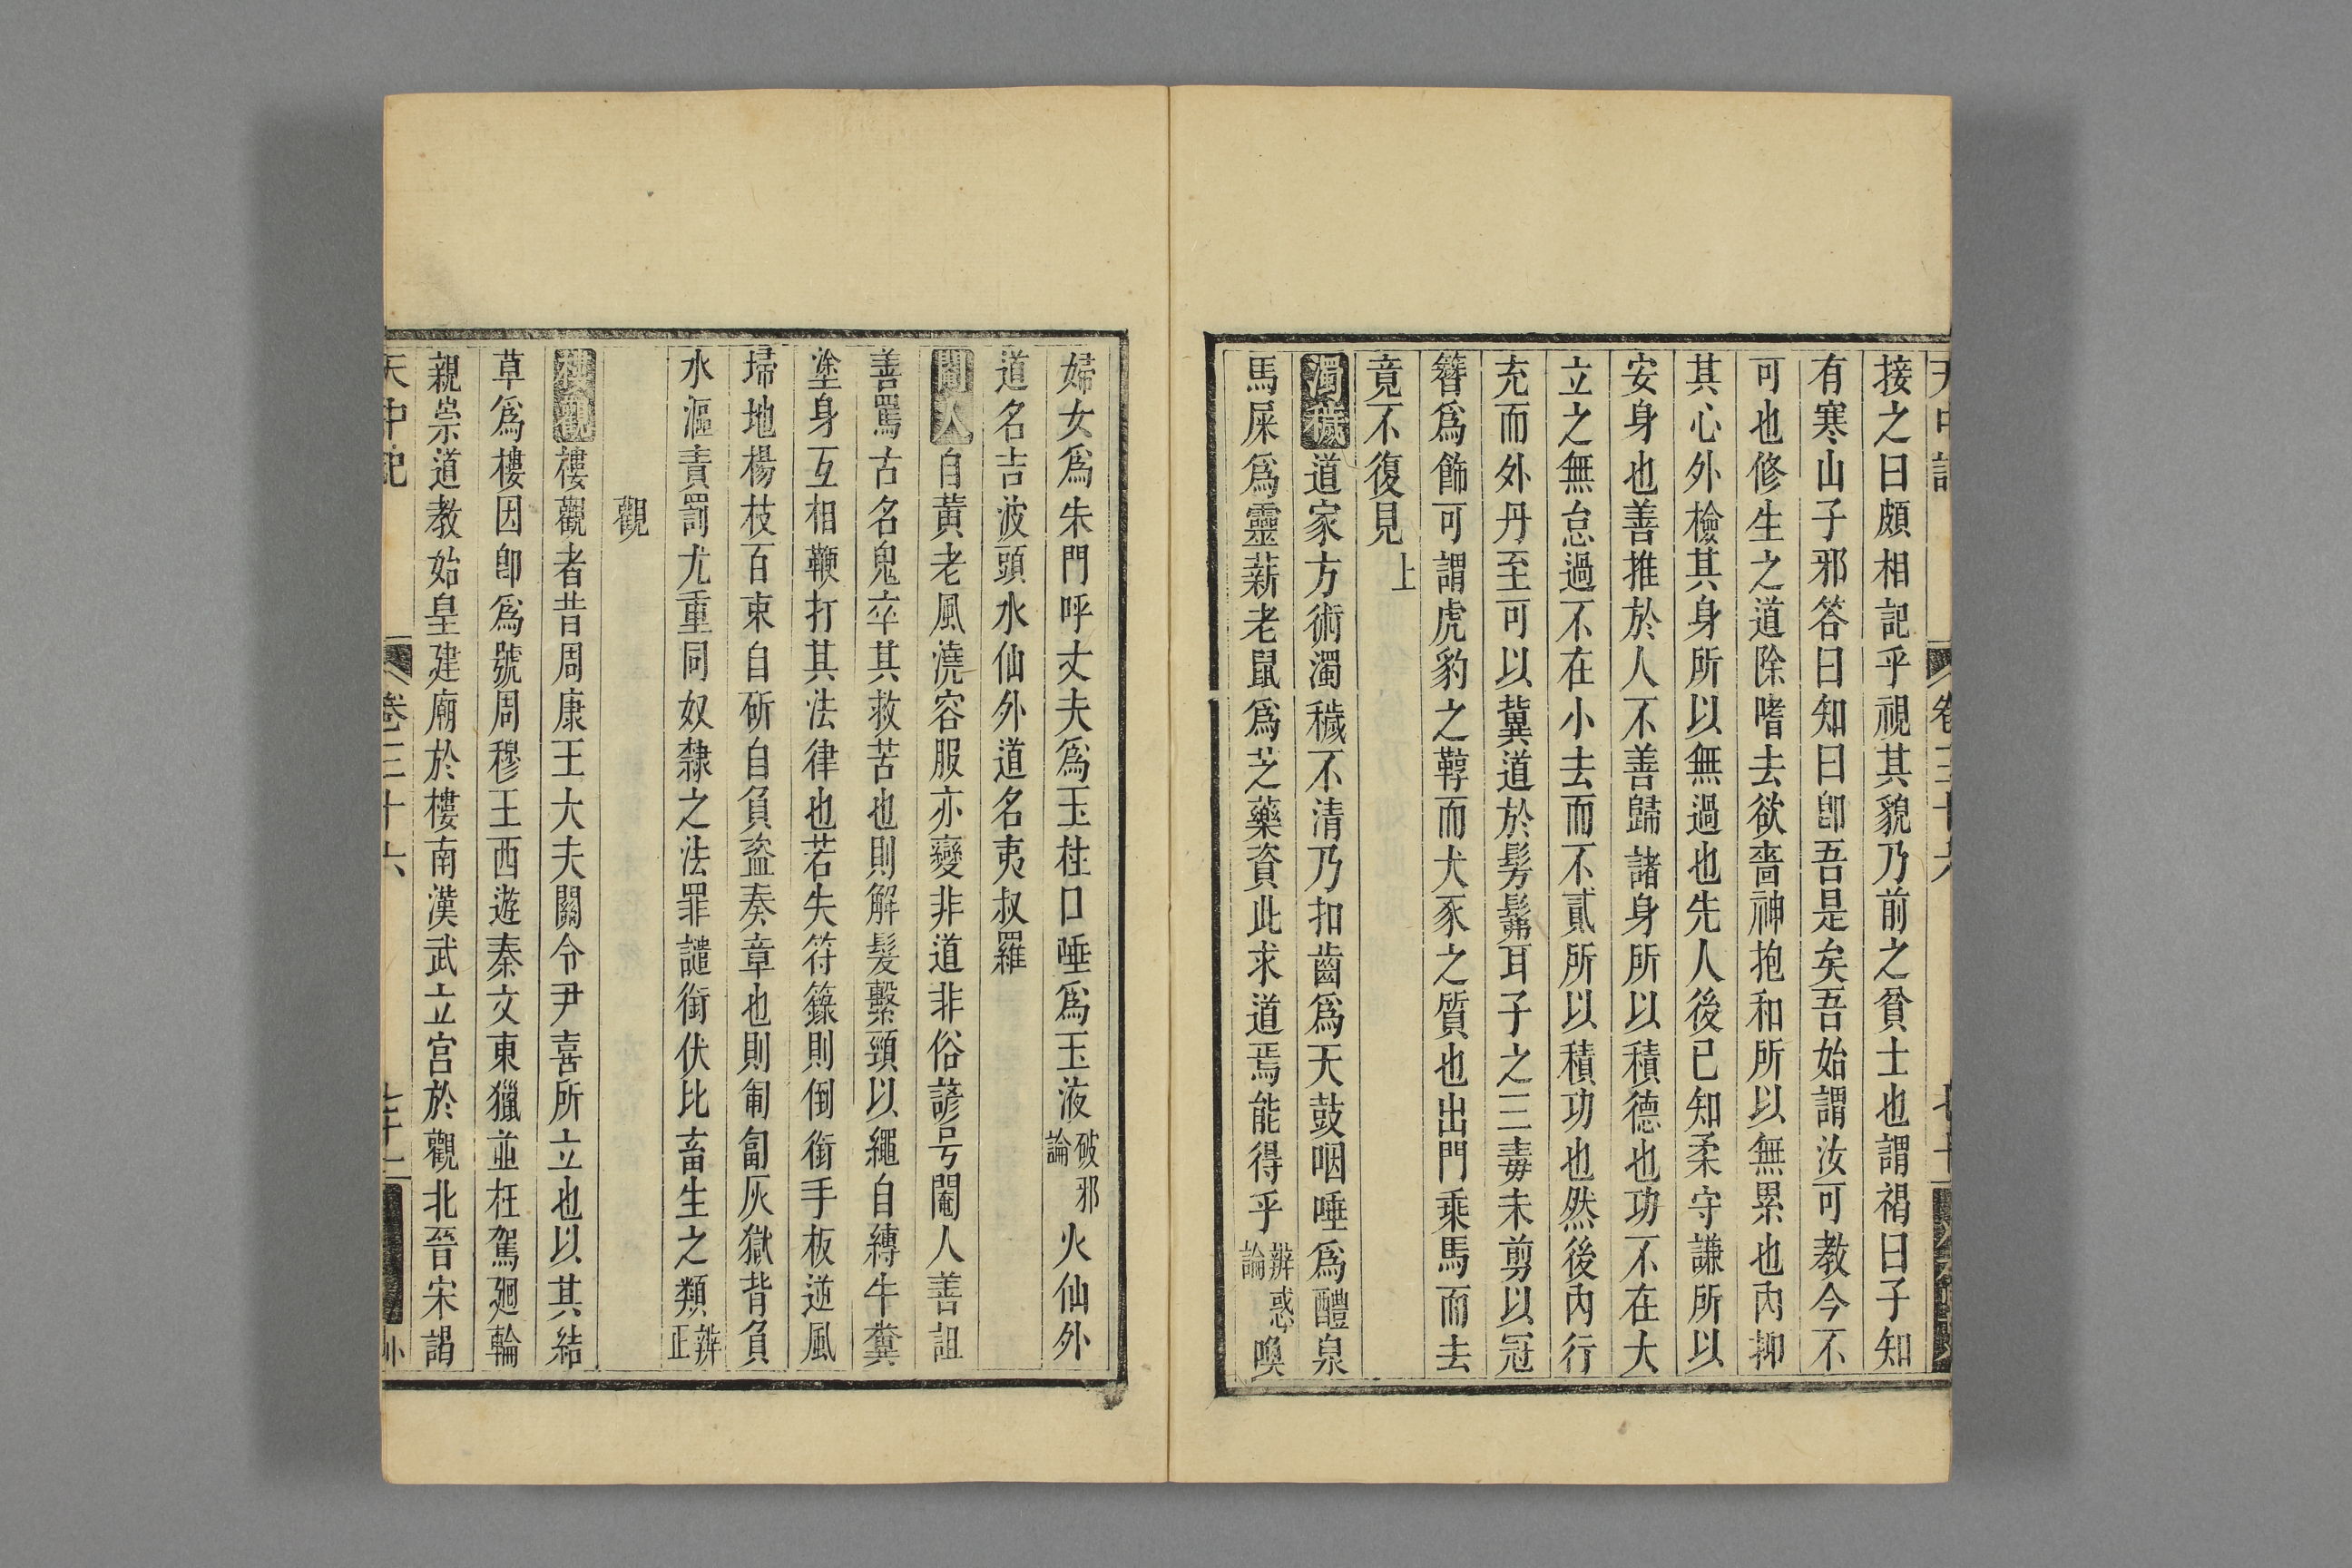 接之曰頗相記乎視其貌乃前之貧士也謂褐曰子知
有寒山子邪答曰知曰卽吾是矣吾始謂汝可教今不
可也修生之道除嗜去欲嗇神抱和所以無累也內抑
其心外檢其身所以無過也先人後已知柔守謙所以
安身也善推於人不善歸諸身所以積德也功不在大
立之無怠過不在小去而不貳所以積功也然後內行
充而外丹至可以冀道於髣髴耳子之三毒未剪以冠
簪爲飾可謂虎豹之鞟而犬豕之質也出門乘馬而去
竟不復見上
濁穢道家方術濁穢不清乃扣齒爲天鼓咽唾爲醴泉
馬屎爲靈薪老鼠爲芝藥資此求道焉能得乎辨惑論喚
婦女爲朱門呼丈夫爲玉柱口唾爲玉液破邪論火仙外
道名吉波頭水仙外道名夷叔羅
閹人自黃老風澆容服亦變非道非俗諺号閹人善詛
善罵古名鬼卒其救苦也則解髮繫頸以繩自縛牛糞
塗身互相鞭打其法律也若失符籙則倒銜手板逆風
埽地楊枝百束自斫自負盜奏章也則匍匐灰獄背負
水漚責罰尤重同奴隸之法罪譴銜伏比畜生之類辨正
觀
樓觀樓觀者昔周康王大夫關令尹喜所立也以其結
草爲樓因卽爲號周穆王西遊秦文東獵並枉駕廻輪
親崇道教始皇建廟於樓南漢武立宮於觀北晉宋謁
天中記 卷三十六